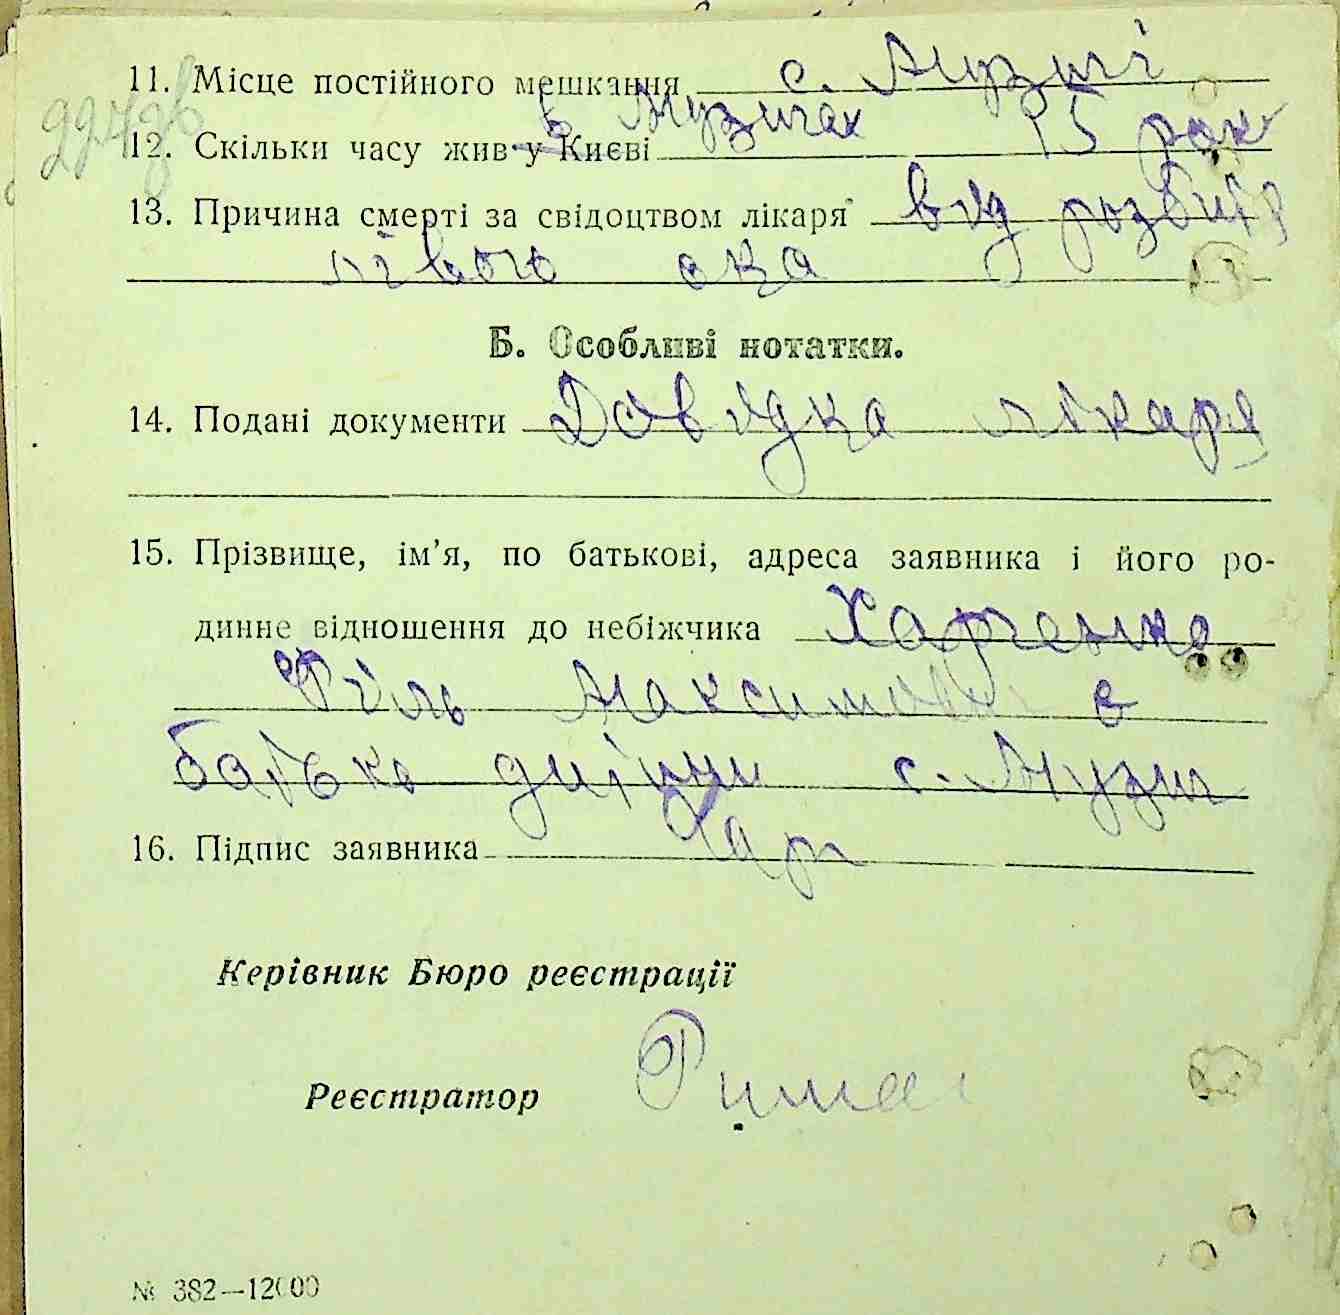 11. Місце постійного мешкання с. Музичі
в Музичах 15 рок
12. Скільки часу жив у Києві
13. Причина смерті за свідоцтвом лікаря від розбиття
лівого ока
Б. Особливі нотатки.
14. Подані документи Довідка лікаря
15. Прізвище, ім’я, по батькові, адреса заявника і його ро-
динне відношення до небіжчика Харченко
Максимов є
батько дитини с. Музич
16. Підпис заявника Хар
Керівник Бюро реєстрації
Реєстратор
№ 382—12000